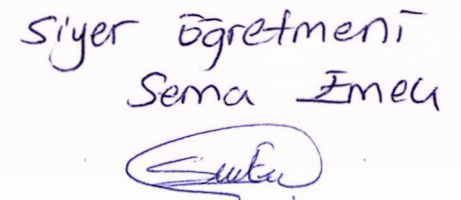 Siyer öğretmeni
Sema Emek